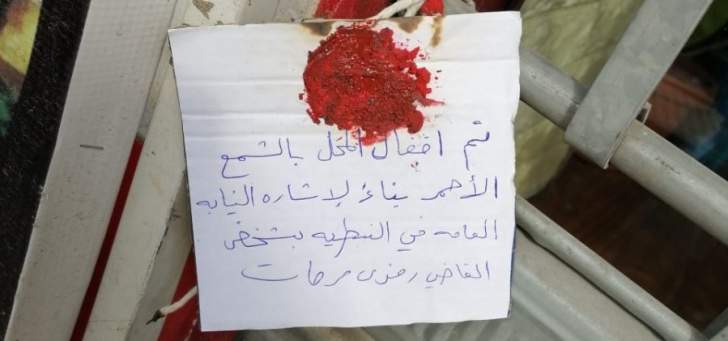 تم اقفال المحل بالشمع
الأحمر بناءً لإشاره النيابه
العامه في النبطيه بشخص
القاضي رمزي فرحات